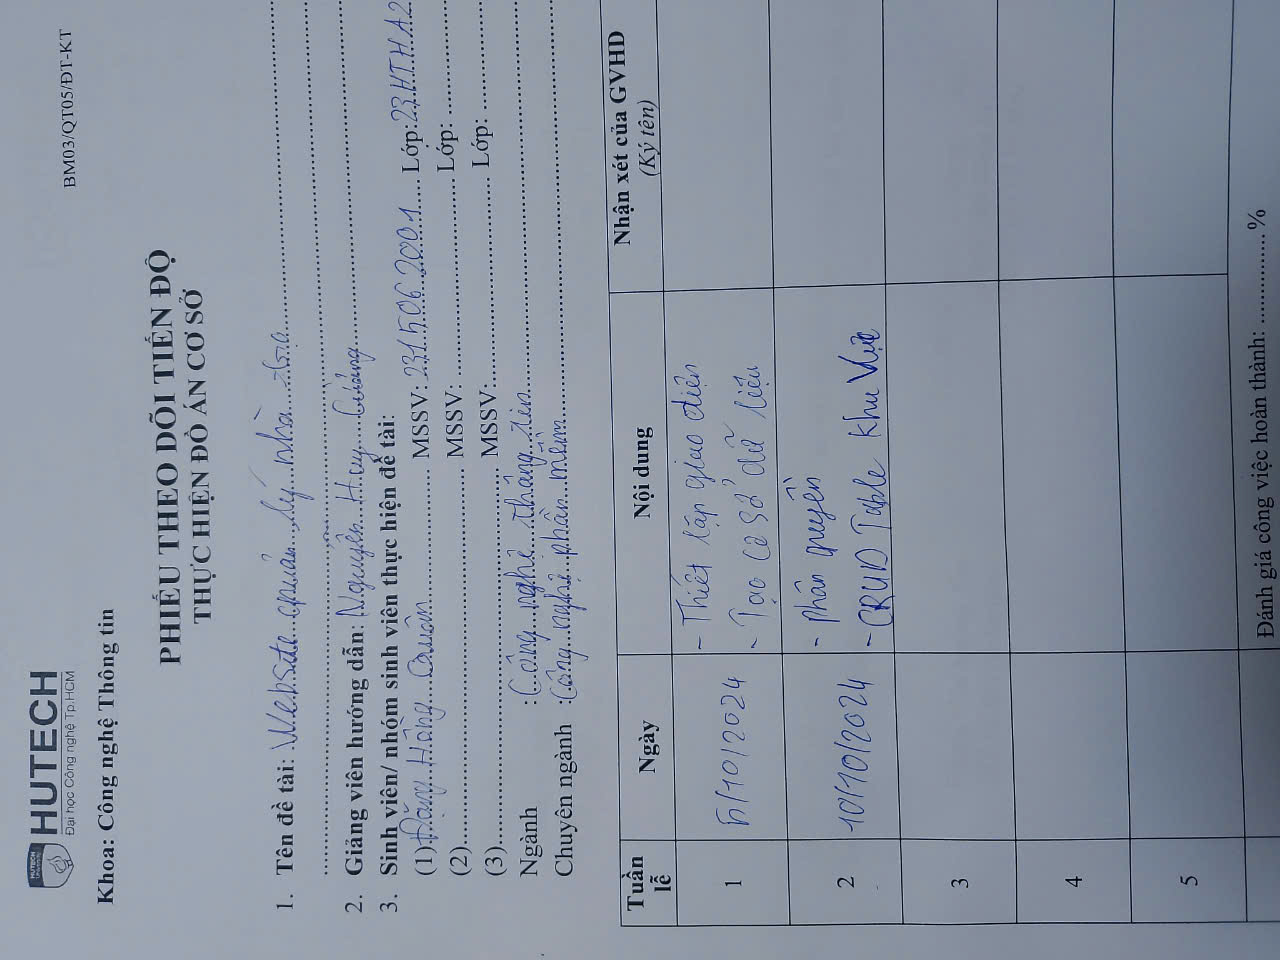 HUTECH
Đại học Công nghệ Tp.HCM
BM03/QT05/ĐT-KT
Khoa: Công nghệ Thông tin
PHIẾU THEO DÕI TIẾN ĐỘ
THỰC HIỆN ĐỒ ÁN CƠ SỞ
1. Tên đề tài: Website quản lý nhà trọ
2. Giảng viên hướng dẫn: Nguyễn Huy Cường
3. Sinh viên/ nhóm sinh viên thực hiện đề tài:
(1) Đặng Hồng Quân MSSV: 2315062001 Lớp: 23HTHA2
(2) MSSV: Lớp:
(3) MSSV: Lớp:
Ngành : Công nghệ thông tin
Chuyên ngành : Công nghệ phần mềm
Tuần lễ Ngày Nội dung Nhận xét của GVHD (Ký tên)
1 5/10/2024 - Thiết lập giao diện
- Tạo cơ sở dữ liệu
2 10/10/2024 - Phân quyền
- CRUD Table Khu Vực
3
4
5
Đánh giá công việc hoàn thành: ............. %